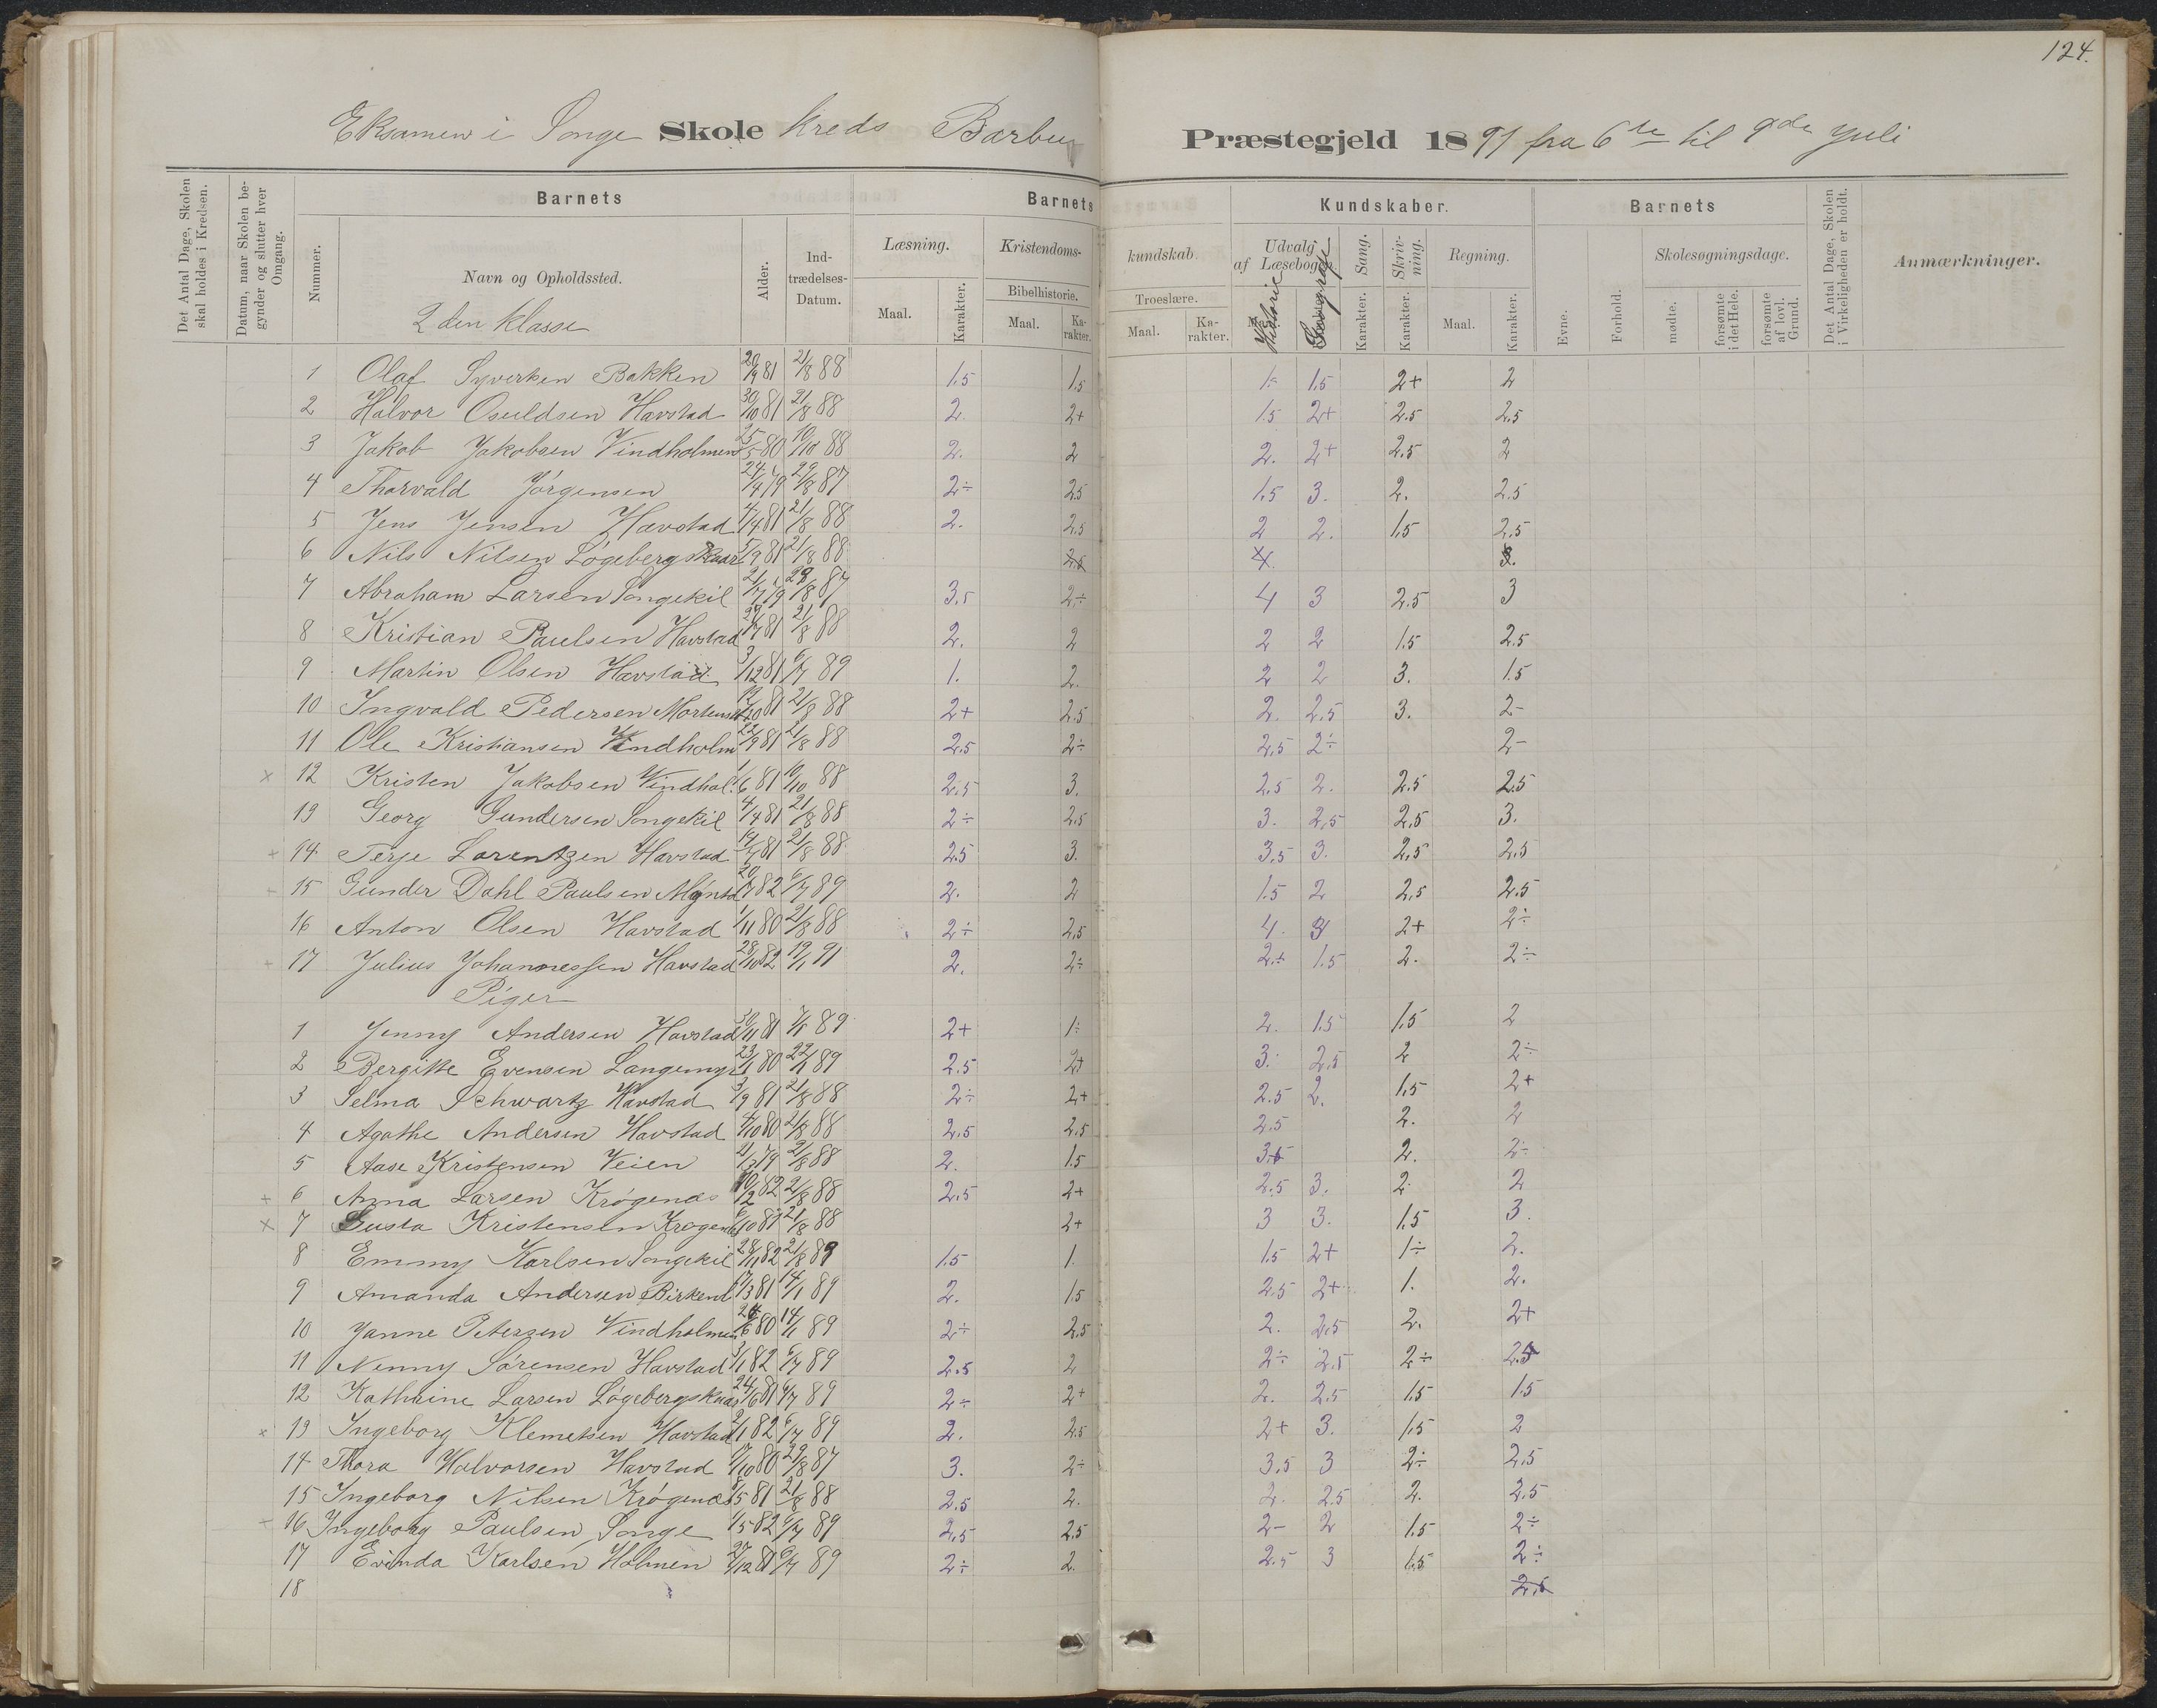 124.
Eksamen i Songe Skole Kreds Barbu Præstegjeld 1891 fra 6te til 9de Juli
Det Antal Dage, Skolen skal holdes i Kredsen.
Datum, naar Skolen begynder og slutter hver Omgang.
Barnets
Nummer.
Navn og Opholdssted.
2den Klasse
Alder.
Indtrædelses-Datum.
Barnets Kundskaber.
Læsning.
Maal. Karakter.
Kristendoms-kundskab.
Bibelhistorie.
Maal. Karakter.
Troeslære.
Maal. Karakter.
Udvalg af Læsebogen
Historie Geografi
Sang. Karakter.
Skrivning. Karakter.
Regning.
Maal. Karakter.
Barnets
Evne. Forhold.
Skolesøgningsdage.
mødte. forsømte i det Hele. forsømte af lovl. Grund.
Det Antal Dage, Skolen i Virkeligheden er holdt.
Anmærkninger.
1 Olaf Syverten Bakken 20/9 81 21/8 88 1.5 1.5 1÷ 1.5 2+ 2
2 Halvor Osuldsen Havstad 30/10 81 21/8 88 2. 2+ 1.5 2+ 2.5 2.5
3 Jakob Jakobsen Vindholmen 25/5 80 10/10 88 2. 2 2. 2+ 2.5 2
4 Thorvald Jørgensen 24/4 79 29/8 87 2÷ 2.5 1.5 3. 2. 2.5
5 Jens Jensen Havstad 4/4 81 21/8 88 2. 2.5 2 2. 1.5 2.5
6 Nils Nilsen Løgebergskaar 5/9 81 21/8 88
7 Abraham Larsen Songekil 21/7 79 29/8 87 3.5 2÷ 4 3 2.5 3
8 Kristian Paulsen Havstad 81 21/8 88 2. 2 2 2 1.5 2.5
9 Martin Olsen Havstad 3/12 81 6/7 89 1. 2. 2 2 3. 1.5
10 Ingvald Pedersen 81 21/8 88 2+ 2.5 2. 2.5 3. 2-
11 Ole Kristiansen Vindholm 22/9 81 21/8 88 2.5 2÷ 2.5 2÷ 2-
x 12 Kristen Jakobsen Vindhol. 1/6 81 10/10 88 2.5 3. 2.5 2. 2.5 2.5
13 Georg Gundersen Songekil 4/4 81 21/8 88 2÷ 2.5 3. 2.5 2.5 3.
+ 14 Terje Lorentzen Havstad 81 21/8 88 2.5 3. 3.5 3. 2.5 2.5
15 Gunder Dahl Paulsen 20/7 82 6/7 89 2. 2 1.5 2 2.5 2.5
16 Anton Olsen Havstad 1/11 80 21/8 88 2÷ 2.5 4. 3 2+ 2÷
17 Julius Johannessen Havstad 28/10 82 19/1 91 2. 2÷ 2÷ 1.5 2. 2÷
Piger
1 Jenny Andersen Havstad 30/11 81 89 2+ 1÷ 2. 1.5 1.5 2
2 Bergitte Evensen Langemyr 80 89 2.5 2+ 3. 2.5 2 2÷
3 Selma Schwartz Havstad 3/9 81 21/8 88 2÷ 2+ 2.5 2. 1.5 2+
4 Agathe Andersen Havstad 80 21/8 88 2.5 2.5 2.5 2. 2
5 Aase Kristensen Veien 79 21/8 88 2. 1.5 2. 2÷
+ 6 Anna Larsen Krøgenæs 82 21/8 88 2.5 2+ 2.5 3. 2 2
x 7 Gusta Kristensen Krøgenæs 21/8 88 2+ 3 3. 1.5 3.
8 Emmy Karlsen Songekil 28/11 82 21/8 89 1.5 1. 1.5 2+ 1÷ 2.
9 Amanda Andersen Birkenl 81 14/1 89 2. 1.5 2.5 2+ 1. 2.
10 Janne Petersen Vindholmen 80 14/1 89 2÷ 2.5 2. 2.5 2. 2+
11 Nenny Sørensen Havstad 3/1 82 6/7 89 2.5 2 2÷ 2.5 2÷
12 Kathrine Larsen Løgebergskaar 24/6 81 6/7 89 2÷ 2+ 2. 2.5 1.5 1.5
x 13 Ingeborg Klemetsen Havstad 2/1 82 6/7 89 2. 2.5 2+ 3. 1.5 2
14 Thora Halvorsen Havstad 80 29/8 87 3. 2÷ 3.5 3 2÷ 2.5
15 Ingeborg Nilsen Krøgenæs 81 21/8 88 2.5 2. 2. 2.5 2. 2.5
16 Ingeborg Paulsen Songe 1/5 82 6/7 89 2.5 2.5 2- 2 1.5 2÷
17 Evinda Karlsen Holmen 27/12 81 6/7 89 2÷ 2. 2.5 3 1.5 2÷
18 2.5